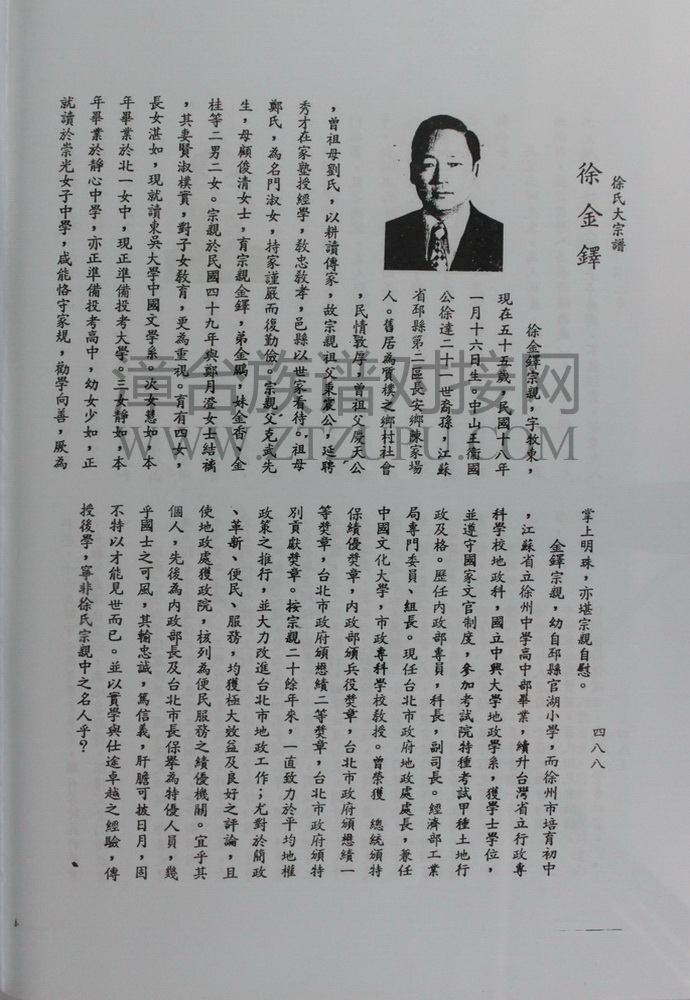 徐氏大宗譜
徐金鐸
徐金鐸宗親，字牧東，
現在五十五歲，民國十八年
一月十六日生。中山王衛國
公徐達二十一世裔孫，江蘇
省邳縣第二區長安鄉陳家場
人。舊居為質樸之鄉村社會
，民情敦厚，曾祖父慶天公
，曾祖母劉氏，以耕讀傳家，故宗親祖父東震公，延聘
秀才在家塾授經學，敎忠敎孝，邑縣以世家看待。祖母
鄭氏，為名門淑女，持家謹嚴而復勤儉。宗親父克武先
生，母顧俊清女士，育宗親金鐸，弟金鵰，妹金香、金
桂等二男二女。宗親於民國四十九年與鄭月澄女士結褵
，其妻賢淑樸實，對子女敎育，更為重視。育有四女，
長女湛如，現就讀東吳大學中國文學系。次女慧如，本
年畢業於北一女中，現正準備投考大學。三女靜如，本
年畢業於靜心中學，亦正準備投考高中，幼女少如，正
就讀於崇光女子中學，咸能恪守家規，勸學向善，厥為
掌上明珠，亦堪宗親自慰。
金鐸宗親，幼自邳縣官湖小學，而徐州市培育初中
，江蘇省立徐州中學高中部畢業，續升台灣省立行政專
科學校地政科，國立中興大學地政學系，獲學士學位，
並遵守國家文官制度，參加考試院特種考試甲種土地行
政及格。歷任內政部專員，科長，副司長。經濟部工業
局專門委員、組長。現任台北市政府地政處處長，兼任
中國文化大學，市政專科學校敎授。曾榮獲　總統頒特
保績優奬章，內政部頒兵役奬章，台北市政府頒懋績一
等奬章，台北市政府頒懋績二等奬章，台北市政府頒特
別貢獻奬章。按宗親二十餘年來，一直致力於平均地權
政策之推行，並大力改進台北市地政工作；尤對於簡政
、革新、便民、服務，均獲極大效益及良好之評論，且
使地政處獲政院，核列為便民服務之績優機關。宜乎其
個人，先後為內政部長及台北市長保舉為特優人員，幾
乎國士之可風，其輸忠誠，篤信義，肝膽可披日月，固
不特以才能見世而已。並以實學與仕途卓越之經驗，傳
授後學，寧非徐氏宗親中之名人乎？
四八八
童台族谱对接网
WWW.ZTZUPU.COM